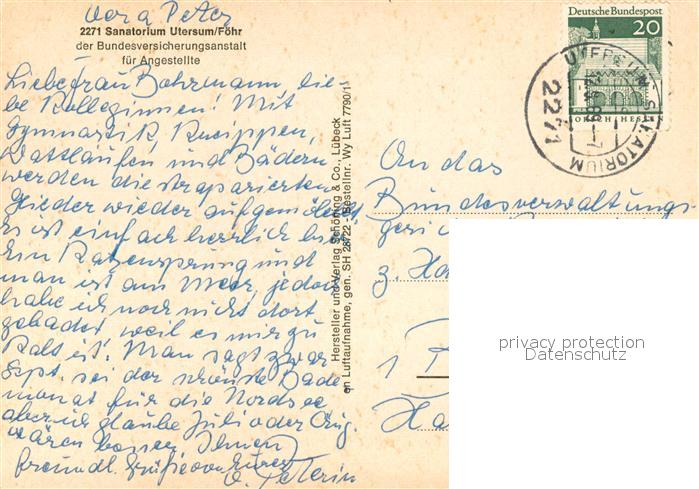 Vera Peter
2271 Sanatorium Utersum/Föhr
der Bundesversicherungsanstalt
für Angestellte
Liebe Frau Bohrmann, lie-
be Kolleginnen! Mit
Gymnastik, Kneippen,
Wattlaufen und Bädern
werden die strapazierten
Glieder wieder aufgemöbelt
es ist einfach herrlich hier
Ein Katzensprung und
man ist am Meer, jedoch
habe ich noch nicht dort
gebadet weil es mir zu
kalt ist. Man sagt zwar
Sept. sei der schönste Bade
monat für die Nordsee
aber ich glaube Juli oder Aug.
wären besser. Ihnen
freundl. Grüße von Eurer
Peterin
Hersteller und Verlag Schöning & Co., Lübeck
Luftaufnahme, gen. SH 28722 Bestellnr. Wy Luft 7790/1
Deutsche Bundespost
20
LORSCH HESSEN
UTERSUM SANATORIUM
2271
An das
Bundesverwaltungs-
z. Ha
1
privacy protection
Datenschutz